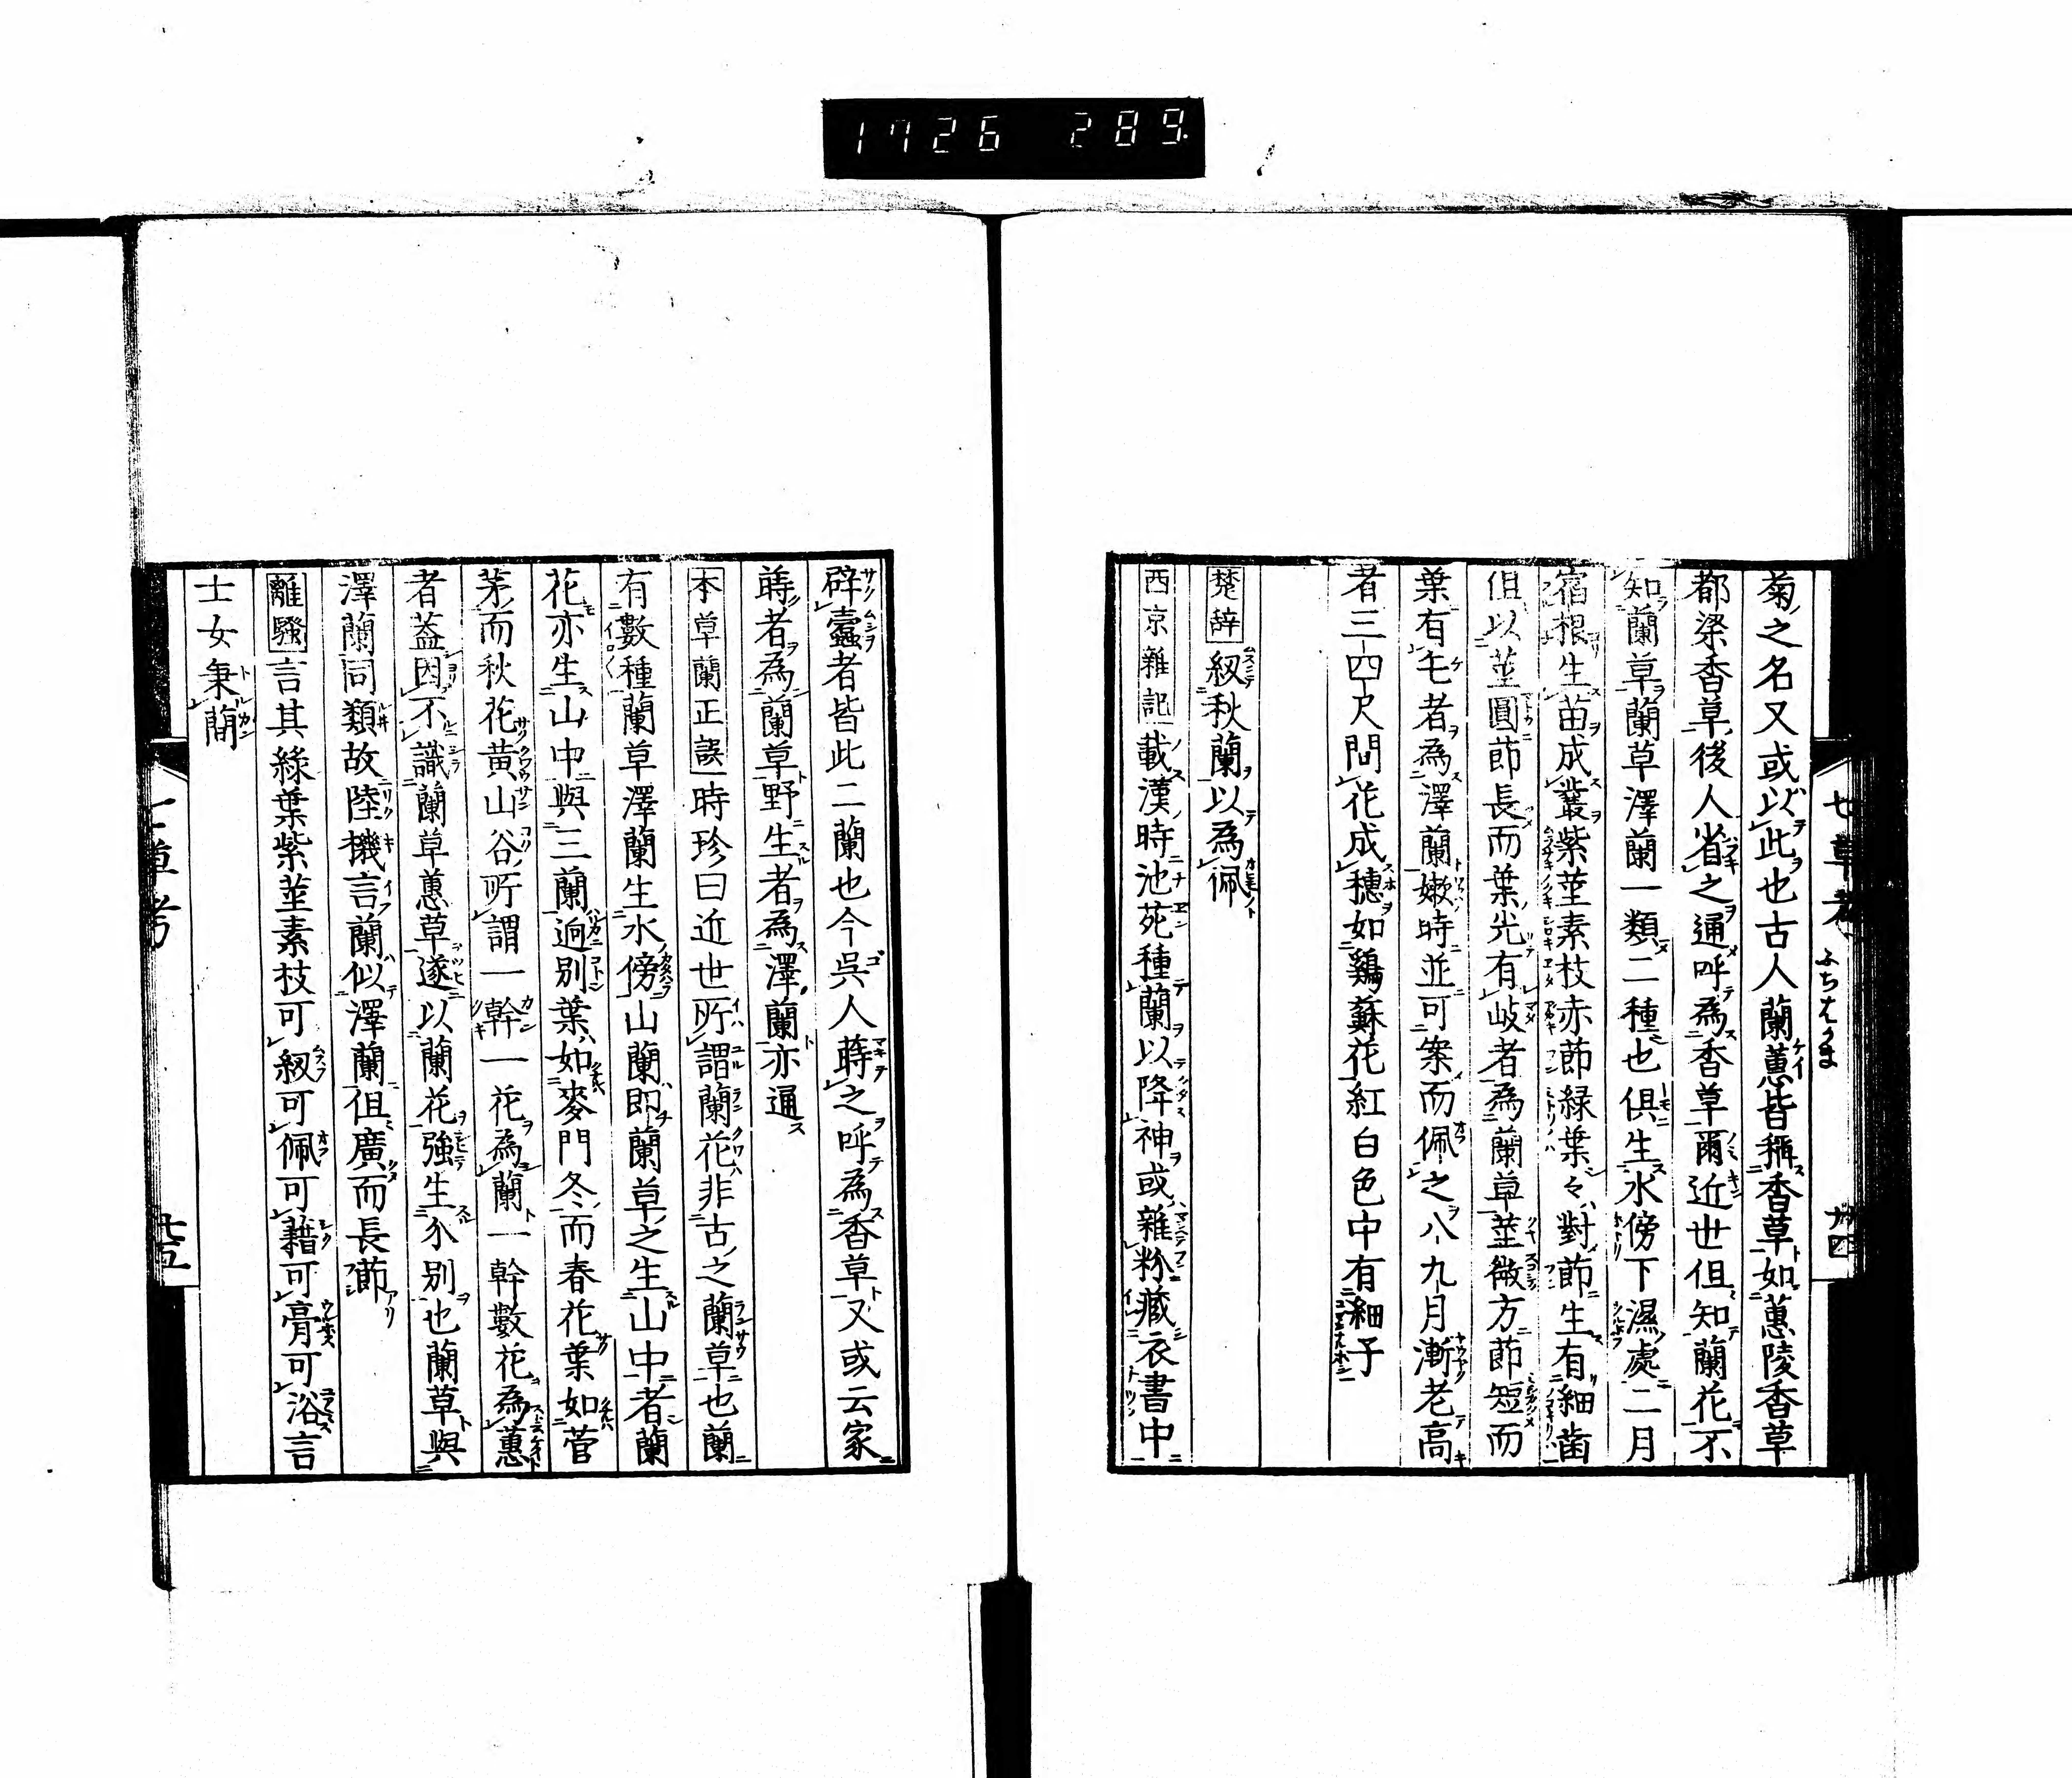 1726 289.
七草考 ふちはかま 廿四
菊之名又或以此也古人蘭蕙皆稱香草如蕙陵香草
都梁香草後人省之通呼為香草爾近世但知蘭花不
知蘭草蘭草澤蘭一類二種也俱生水傍下濕處二月
宿根生苗成叢紫莖素枝赤節緑葉々對節生有細齒
但以莖圓節長而葉光有岐者為蘭草莖微方節短而
葉有毛者為澤蘭嫩時並可案而佩之八九月漸老高
者三四尺間花成穗如鷄蘇花紅白色中有細子
楚辞 紉秋蘭以為佩
西京雜記 載漢時池苑種蘭以降神或雜粉藏衣書中
辟蠹者皆此二蘭也今呉人蒔之呼為香草又或云家
蒔者為蘭草野生者為澤蘭亦通
本草蘭正誤 時珍曰近世所謂蘭花非古之蘭草也蘭
有數種蘭草澤蘭生水傍山蘭即蘭草之生山中者蘭
花亦生山中與三蘭逈別葉如麥門冬而春花葉如菅
茅而秋花黄山谷所謂一幹一花為蘭一幹數花為蕙
者葢因不識蘭草蕙草遂以蘭花強生分別也蘭草與
澤蘭同類故陸機言蘭似澤蘭但廣而長節
離騷 言其緑葉紫莖素枝可紉可佩可藉可膏可浴言
士女秉蕑
七草考 七五